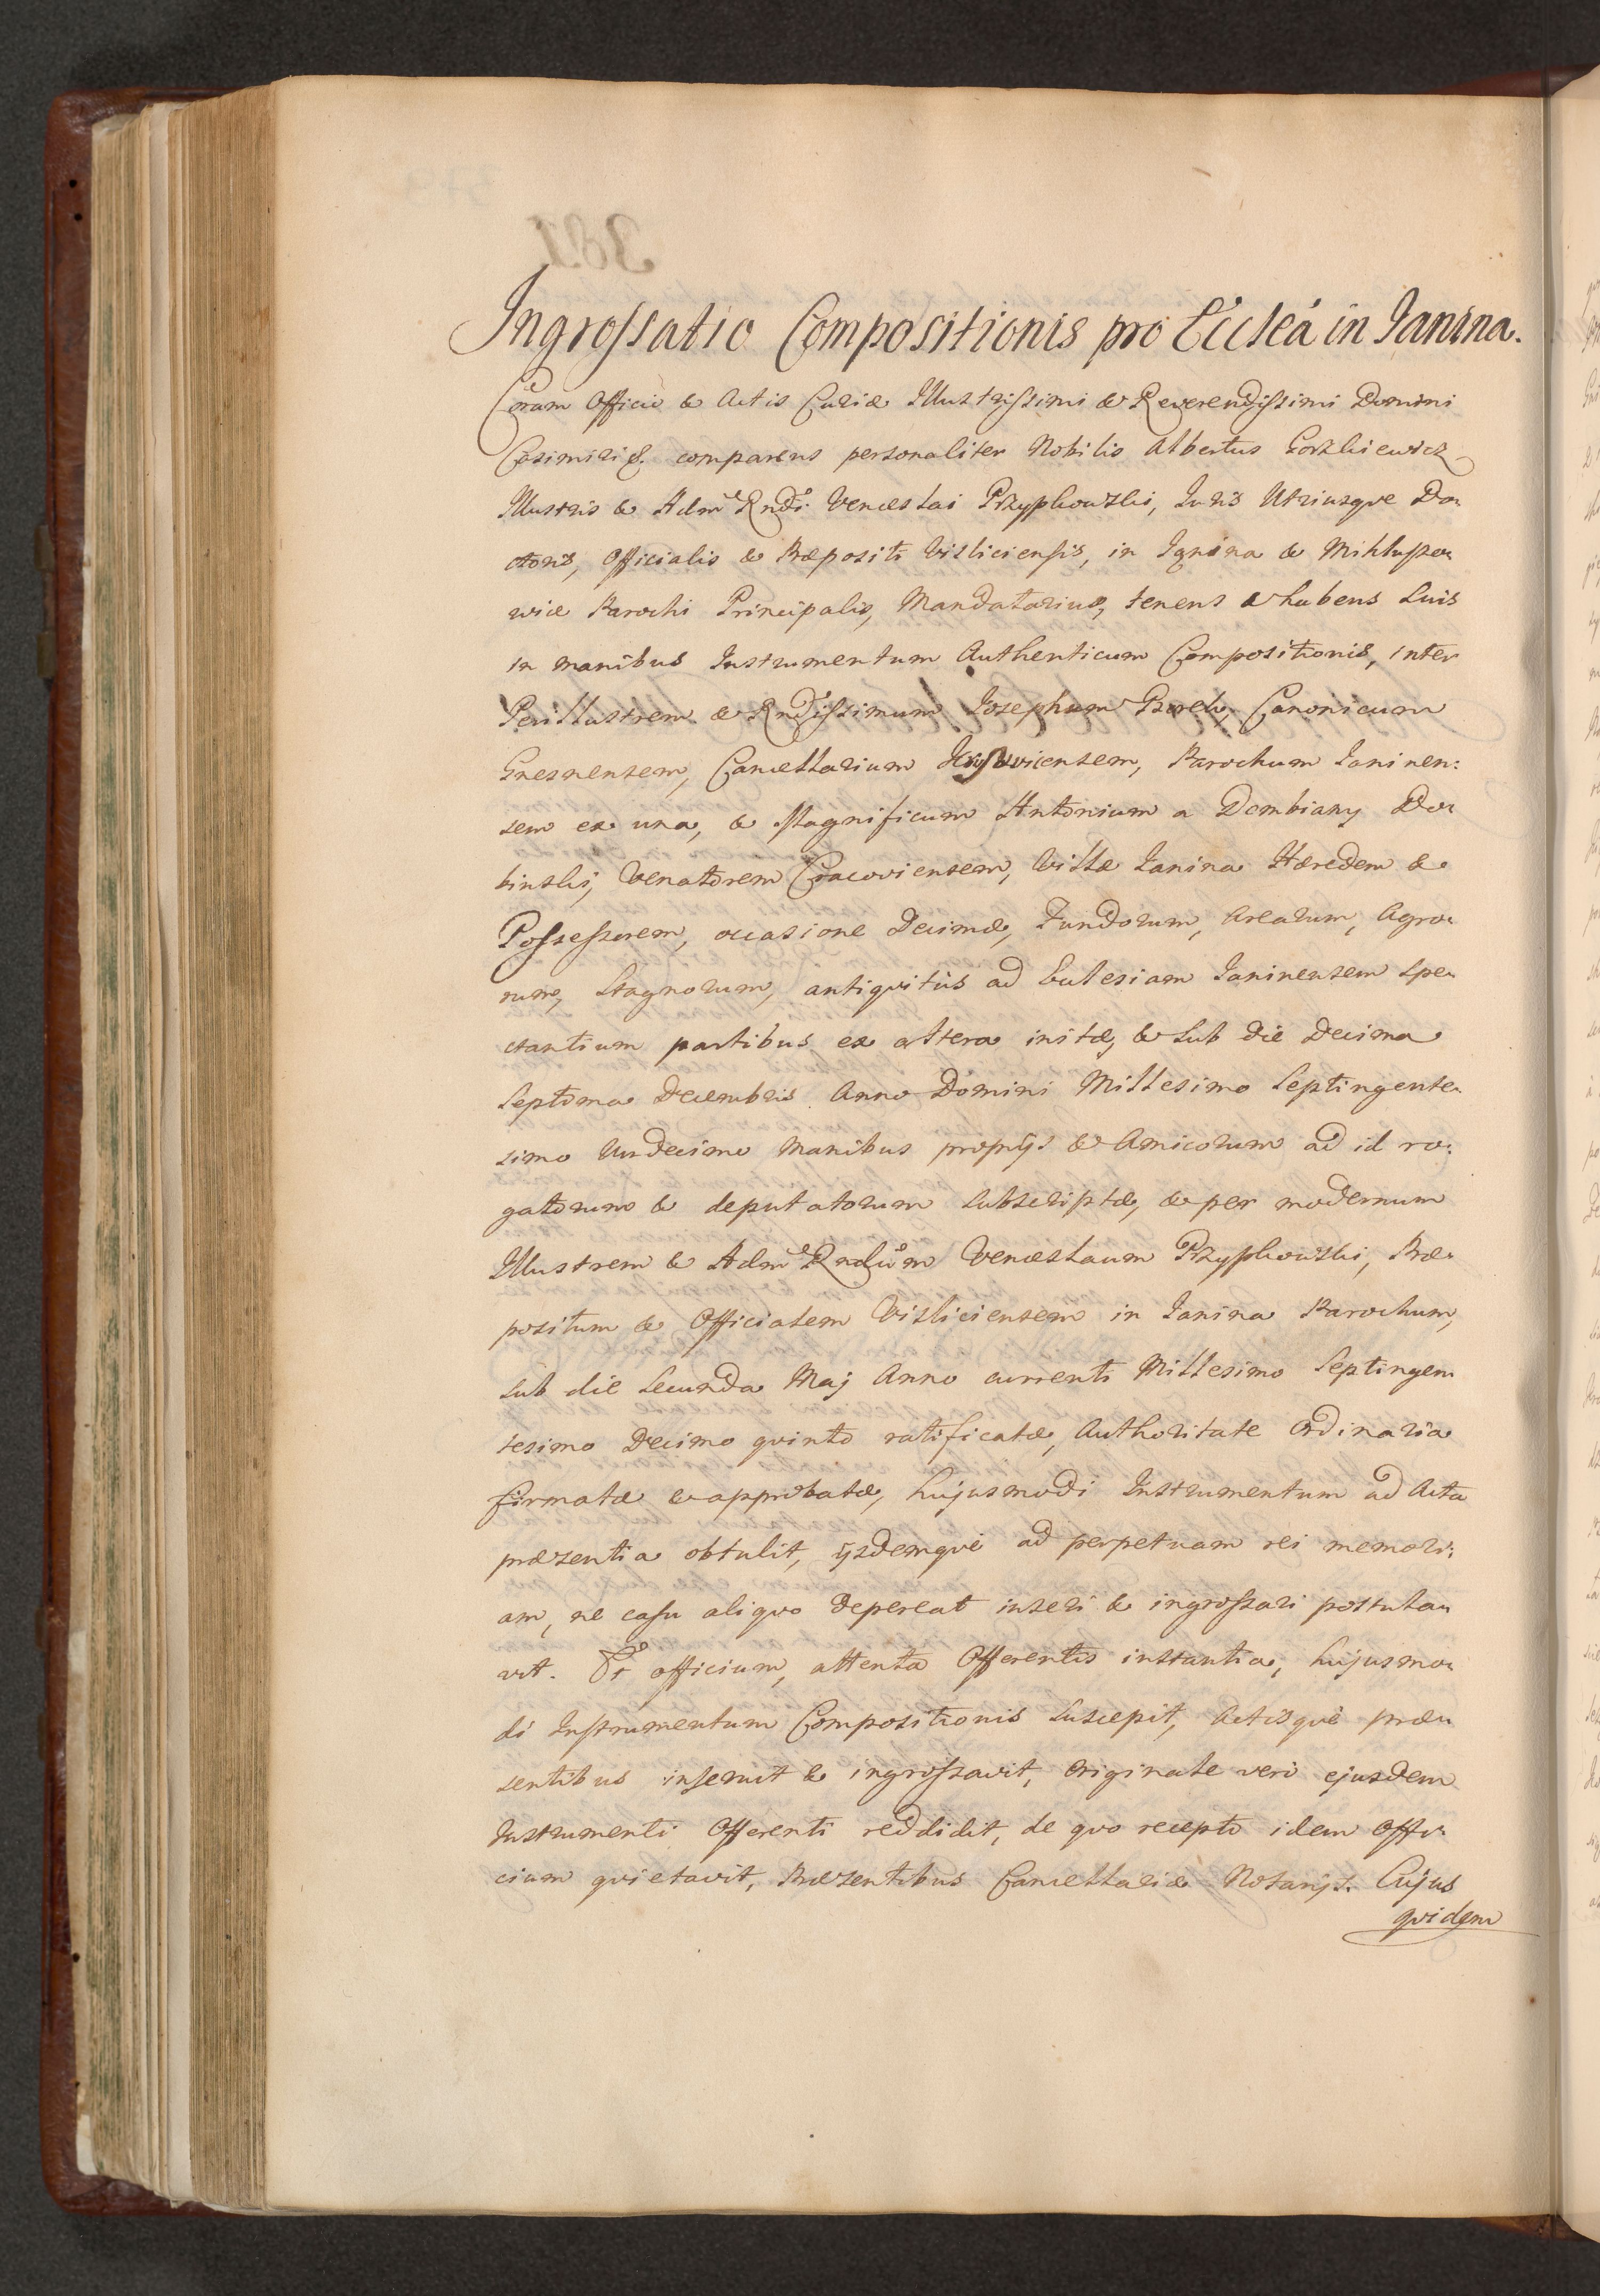 Ingrossatio Compositionis pro Eccleá in Janina.
Coram Officio & Actis Curiæ Illustrissimi & Reverendissimi Domini
Casimiri &. comparens personaliter Nobilis Albertus Gorzkiewicz
Illustris & Adm Rndi Venceslai Przypkowski, Juris Utriusque Do-
ctoris, Officialis & Præpositi Visliciensis, in Janina &
wice Parochi Principalis, Mandatarius, tenens & habens suis
in manibus Instrumentum Authenticum Compositionis, inter
Perillustrem & Rndissimum Josephum Canonicum
Gnesnensem, Cancellarium Parochum Janinen:
sem ex una, & Magnificum Antonium a Dembiany Dem
binski, Venatorem Cracoviensem, Villæ Janina Hæredem &
Possessorem, occasione Decimæ, Fundorum, Arearum, Agro-
rum, Stagnorum, antiquitùs ad Ecclesiam Janinensem spe-
ctantium partibus ex altera initæ, & sub die Decima
Septima Decembris Anno Domini Millesimo Septingente-
simo Undecimo manibus proprijs & Amicorum ad id ro-
gatorum & deputatorum subscriptæ, & per modernum
Illustrem & Adm Rndum Venceslaum Przypkowski, Præ-
positum & Officialem Visliciensem in Janina Parochum,
sub die secunda Maj Anno currenti Millesimo Septingen
tesimo Decimo quinto ratificatæ, Authoritate Ordinaria
firmatæ & approbatæ, hujusmodi Instrumentum ad Acta
præsentia obtulit, ijsdemquè ad perpetuam rei memori:
am, ne casu aliquo depereat inseri & ingrossari postula-
vit. Et officium, attenta Offerentis instantia, hujusmo-
di Instrumentum Compositionis suscepit, Actisquè præ-
sentibus inseruit & ingrossavit, Originale verò ejusdem
Instrumenti Offerenti reddidit, de quo recepto idem Offi-
cium quietavit, Præsentibus Cancellariæ Notarijs. Cujus
quidem